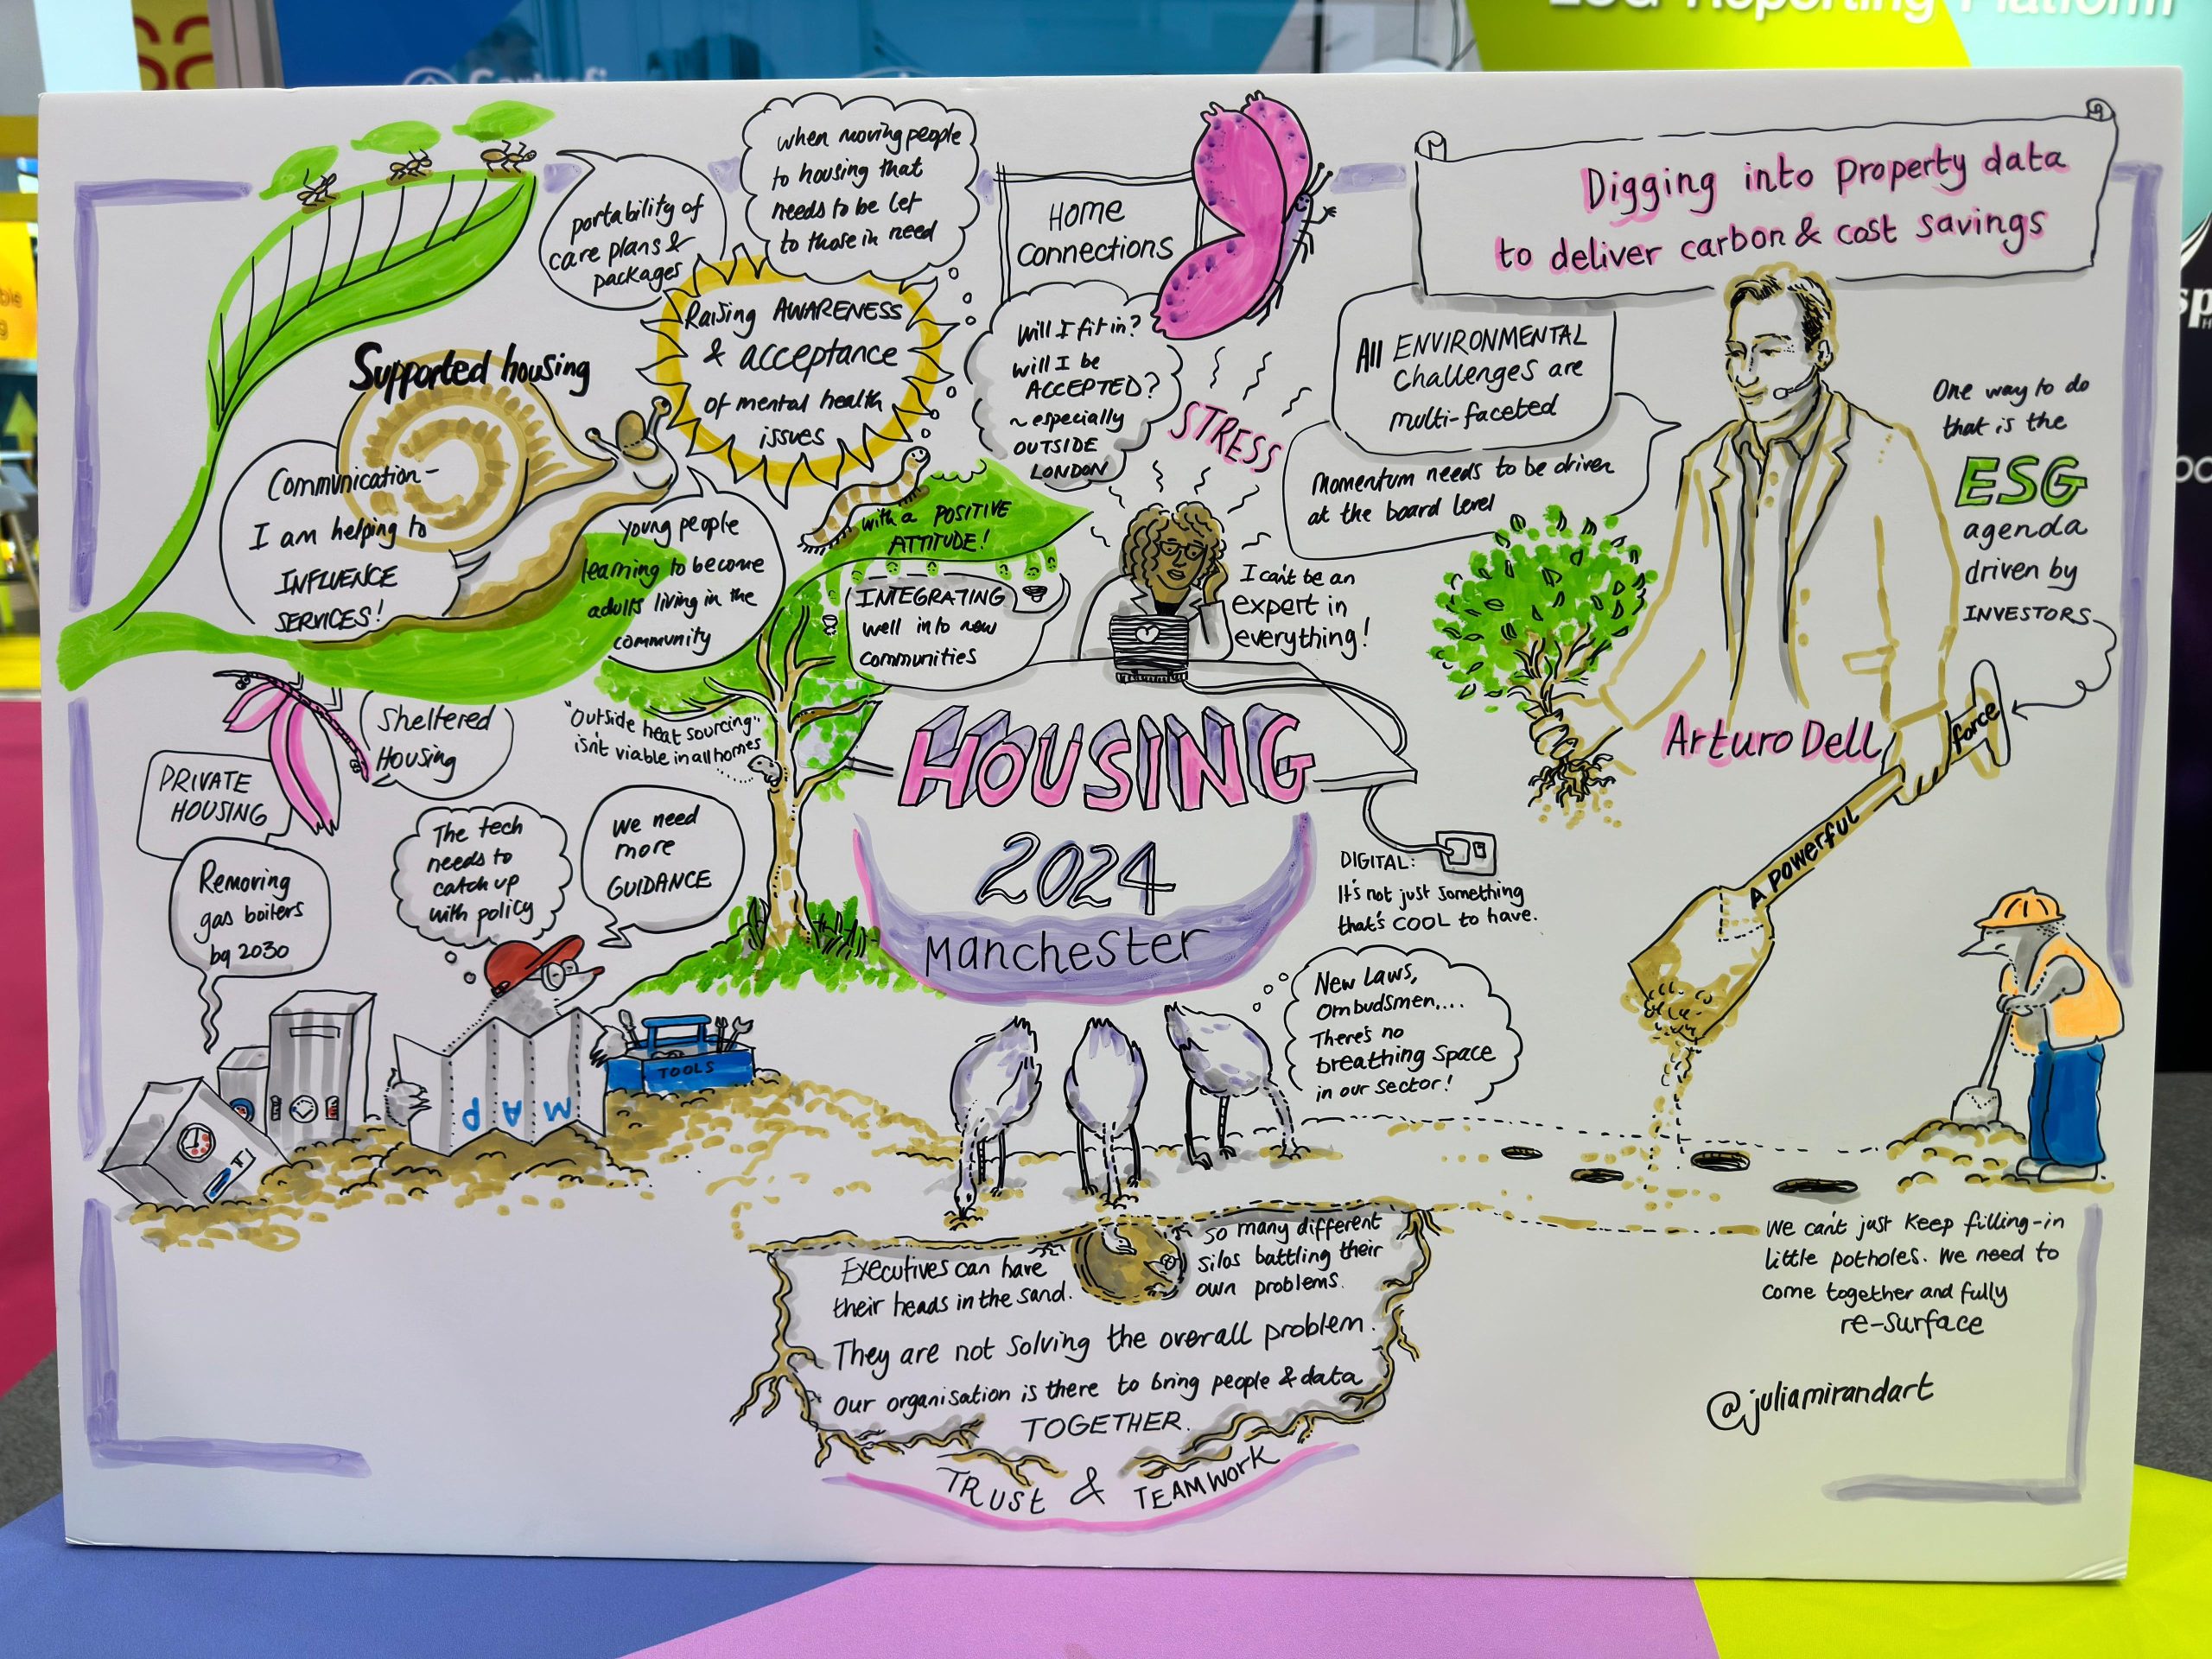 ESG Reporting Platform
portability of
care plans &
packages
when moving people
to housing that
needs to be let
to those in need
Raising AWARENESS
& acceptance
of mental health
issues
with a POSITIVE
ATTITUDE!
Supported housing
Communication-
I am helping to
INFLUENCE
SERVICES!
young people
learning to become
adults living in the
community
HOME
CONNECTIONS
Will I fit in?
will I be
ACCEPTED?
~ especially
OUTSIDE
LONDON
STRESS
INTEGRATING
well into new
communities
I can't be an
expert in
everything!
Digging into property data
to deliver carbon & cost savings
All ENVIRONMENTAL
challenges are
multi-faceted
Momentum needs to be driven
at the board level
One way to do
that is the
ESG
agenda
driven by
INVESTORS
Arturo Dell
A powerful
force
Sheltered
Housing
PRIVATE
HOUSING
Removing
gas boilers
by 2030
"Outside heat sourcing"
isn't viable in all homes
The tech
needs to
catch up
with policy
We need
more
GUIDANCE
MAP
TOOLS
HOUSING
2024
Manchester
DIGITAL:
It's not just something
that's COOL to have.
New Laws,
Ombudsmen,...
There's no
breathing space
in our sector!
Executives can have
their heads in the sand.
So many different
silos battling their
own problems.
They are not solving the overall problem.
Our organisation is there to bring people & data
TOGETHER.
TRUST & TEAMWORK
We can't just keep filling-in
little potholes. We need to
come together and fully
re-surface
@juliamirandart